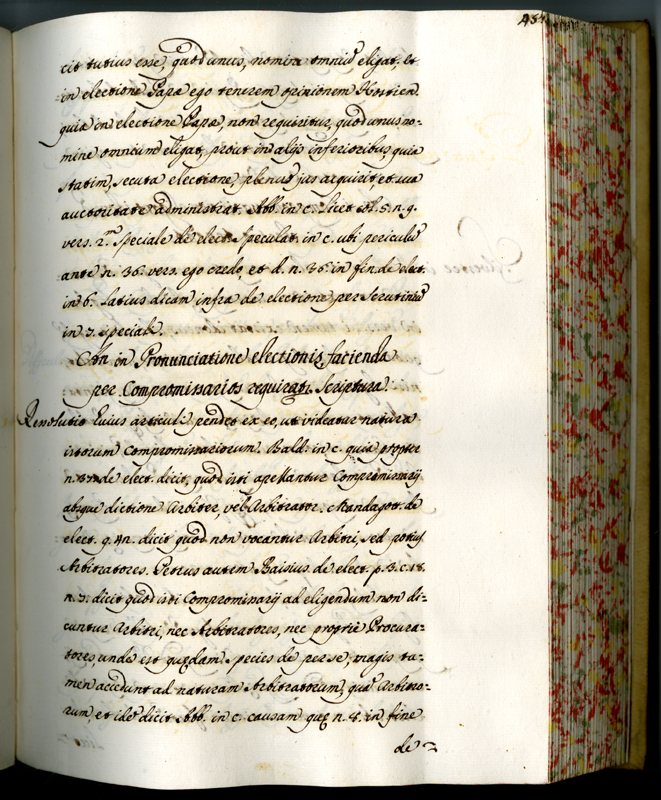 cit tutius esse, quod unus, nomine omniũ eligat, et
in electione Papæ ego tenerem opinionem Hostien.
quia in electione Papæ, non requiritur, quod unus no-
mine omnium eligat, prout in alijs inferioribus, quia
statim, secuta electione, plenũ jus acquirit, et sua
auctoritate administrat. Abb. in c. licet col. 5. n. 9.
vers. 2.m speciale de elect. Speculat. in c. ubi periculũ
ante n. 36. vers. ego credo, et d. n. 36. in fin. de elect.
in 6. latius dicam infra de electione per Scrutiniũ
in 3. speciali.
An in Pronunciatione electionis facienda
per Compromissarios requiratr. Scriptura.
Resolutio huius articuli pendet ex eo, ut videatur natura
istorum Compromissariorum. Bald. in c. quia propter
de elect. dicit, quod isti apellantur Compromissarij
absque dictione Arbiter, vel Arbitrator. Mandagot. de
elect. dicit quod non vocantur Arbitri, sed potiũs
Arbitratores. Petrus autem Baisius de elect. p. 3. c. 18.
n. 3. dicit quod isti Compromissarij ad eligendum non di-
cuntur Arbitri, nec Arbitratores, nec propriè Procura-
tores, unde est quædam species de per se, magis ta-
men accedunt ad naturam Arbitratorum, quã Arbitro-
rum, et ideò dicit Abb. in c. causam quæ n. 8. in fine
de